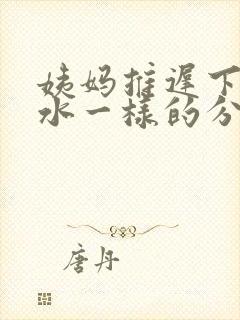 姨妈推迟下
水一样的分
唐丹